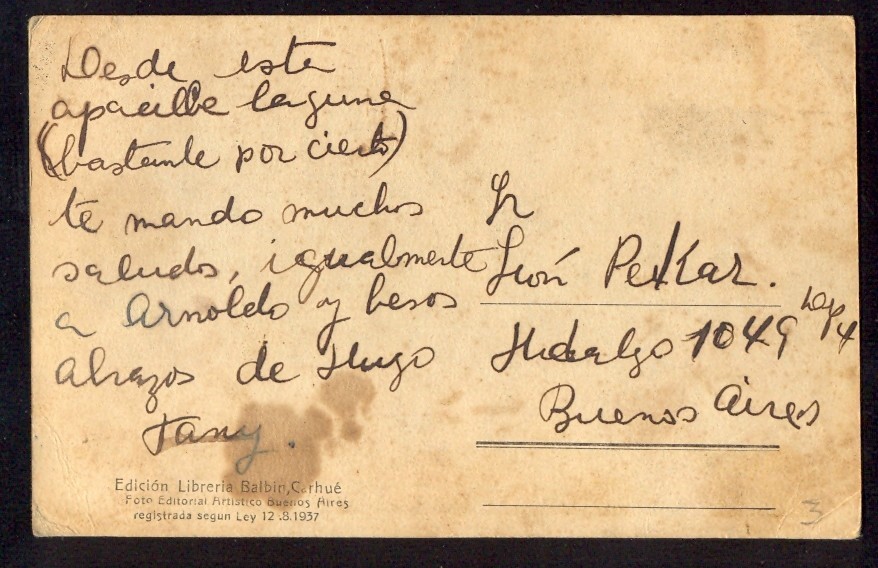 Desde este
apacible laguna
(bastante por cierto)
te mando muchos
saludos, igualmente
a Arnoldo y besos
abrazos de Hugo
Fany.
Edición Libreria Balbin, Carhué
Foto Editorial Artistico Buenos Aires
registrada segun Ley 12.8.1937
Sr
León Pekar.
Hidalgo 1049 Dep 4
Buenos Aires
3